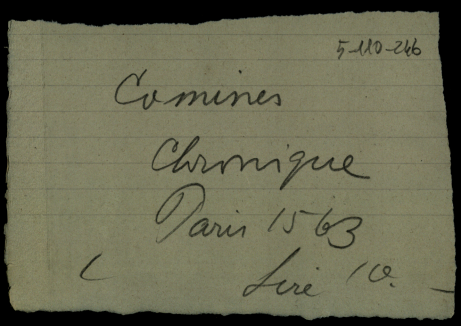 5-110-246
Comines
Chronique
Paris 1563
Lire 10.